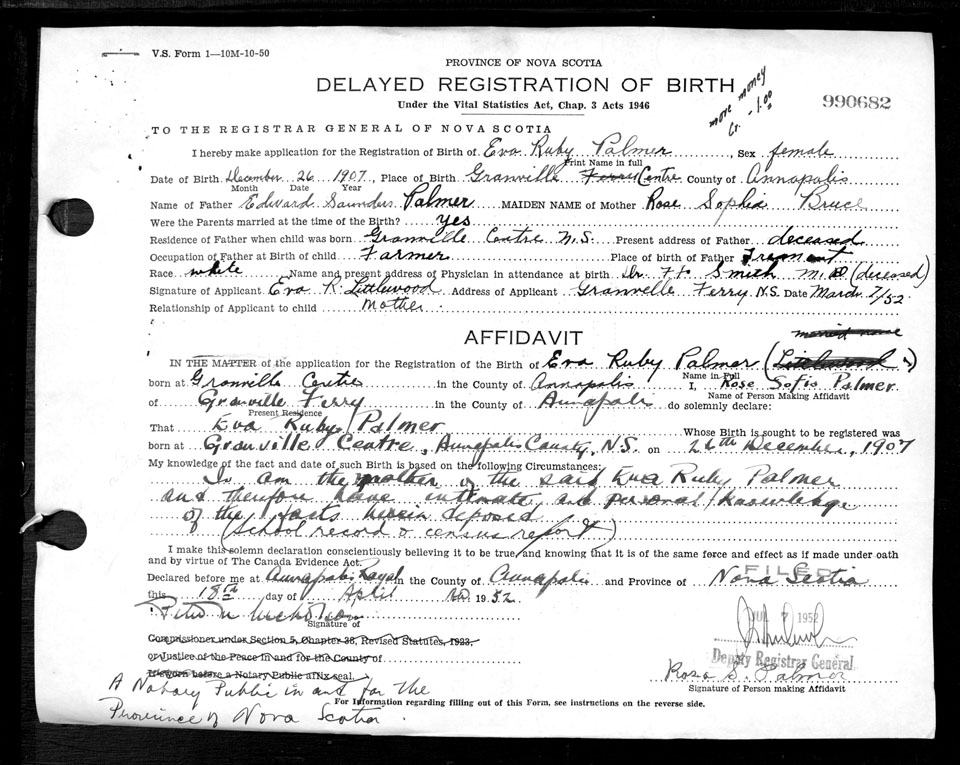 V.S. Form 1—10M-10-50
PROVINCE OF NOVA SCOTIA
DELAYED REGISTRATION OF BIRTH
Under the Vital Statistics Act, Chap. 3 Acts 1946
more money
Cr. - 1.00
990682
TO THE REGISTRAR GENERAL OF NOVA SCOTIA
I hereby make application for the Registration of Birth of Eva Ruby Palmer, Sex female
Print Name in full
Date of Birth December 26 1907, Place of Birth Granville Ferry Centre County of Annapolis
Month Date Year
Name of Father Edward Saunders Palmer MAIDEN NAME of Mother Rose Sophia Bruce
Were the Parents married at the time of the Birth? yes
Residence of Father when child was born Granville Centre N.S. Present address of Father deceased
Occupation of Father at Birth of child Farmer Place of birth of Father Tremont
Race white Name and present address of Physician in attendance at birth Dr. F. Smith M.D (deceased)
Signature of Applicant Eva R. Littlewood Address of Applicant Granville Ferry N.S. Date March 7/52
Relationship of Applicant to child Mother
AFFIDAVIT
married name
IN THE MATTER of the application for the Registration of the Birth of Eva Ruby Palmer (Littlewood)
Name in Full
born at Granville Centre in the County of Annapolis I, Rose Sofia Palmer
Name of Person Making Affidavit
of Granville Ferry in the County of Annapolis do solemnly declare:
Present Residence
That Eva Ruby Palmer Whose Birth is sought to be registered was
born at Granville Centre, Annapolis County, N.S. on 26th December, 1907
My knowledge of the fact and date of such Birth is based on the following Circumstances:
I am the mother of the said Eva Ruby Palmer
and therefore have intimate and personal knowledge
of the facts herein deposed
(School record & census report)
I make this solemn declaration conscientiously believing it to be true, and knowing that it is of the same force and effect as if made under oath
and by virtue of The Canada Evidence Act.
FILED
Declared before me at Annapolis Royal in the County of Annapolis and Province of Nova Scotia
this 18th day of April AD 1952
Peter Nicholson
Signature of
JUL 7 1952
Commissioner under Section 5, Chapter 38, Revised Statutes, 1923.
or Justice of the Peace in and for the County of
If sworn before a Notary Public affix seal.
Deputy Registrar General
Rosa S. Palmer
Signature of Person making Affidavit
A Notary Public in and for the
Province of Nova Scotia.
For Information regarding filling out of this Form, see instructions on the reverse side.